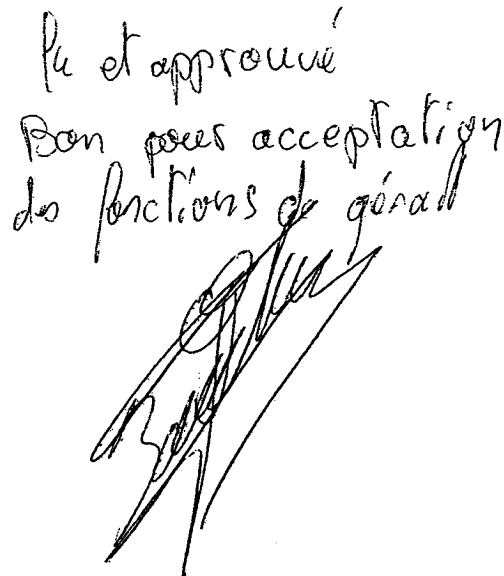 Lu et approuvé
Bon pour acceptation
des fonctions de gérant